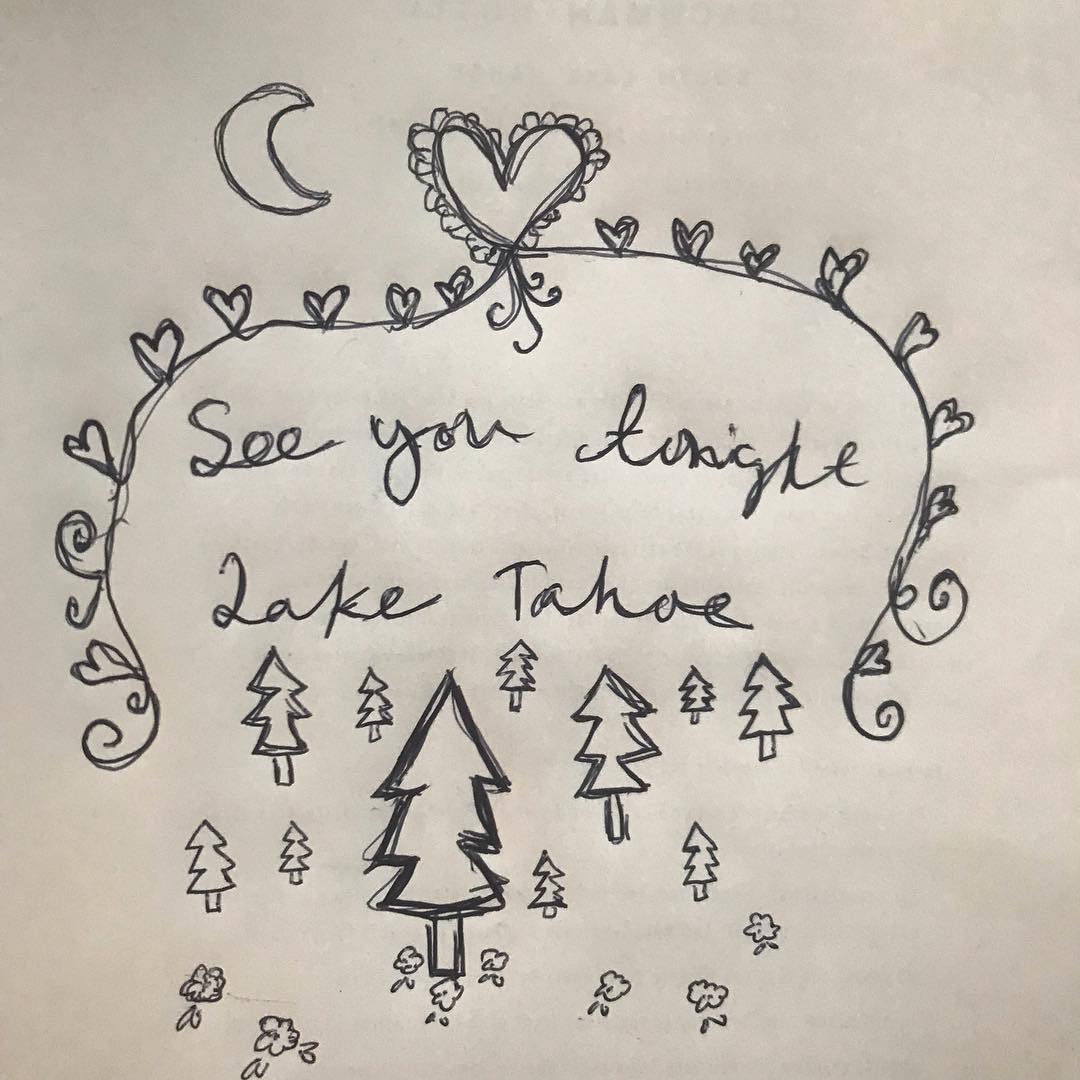 See you tonight
Lake Tahoe